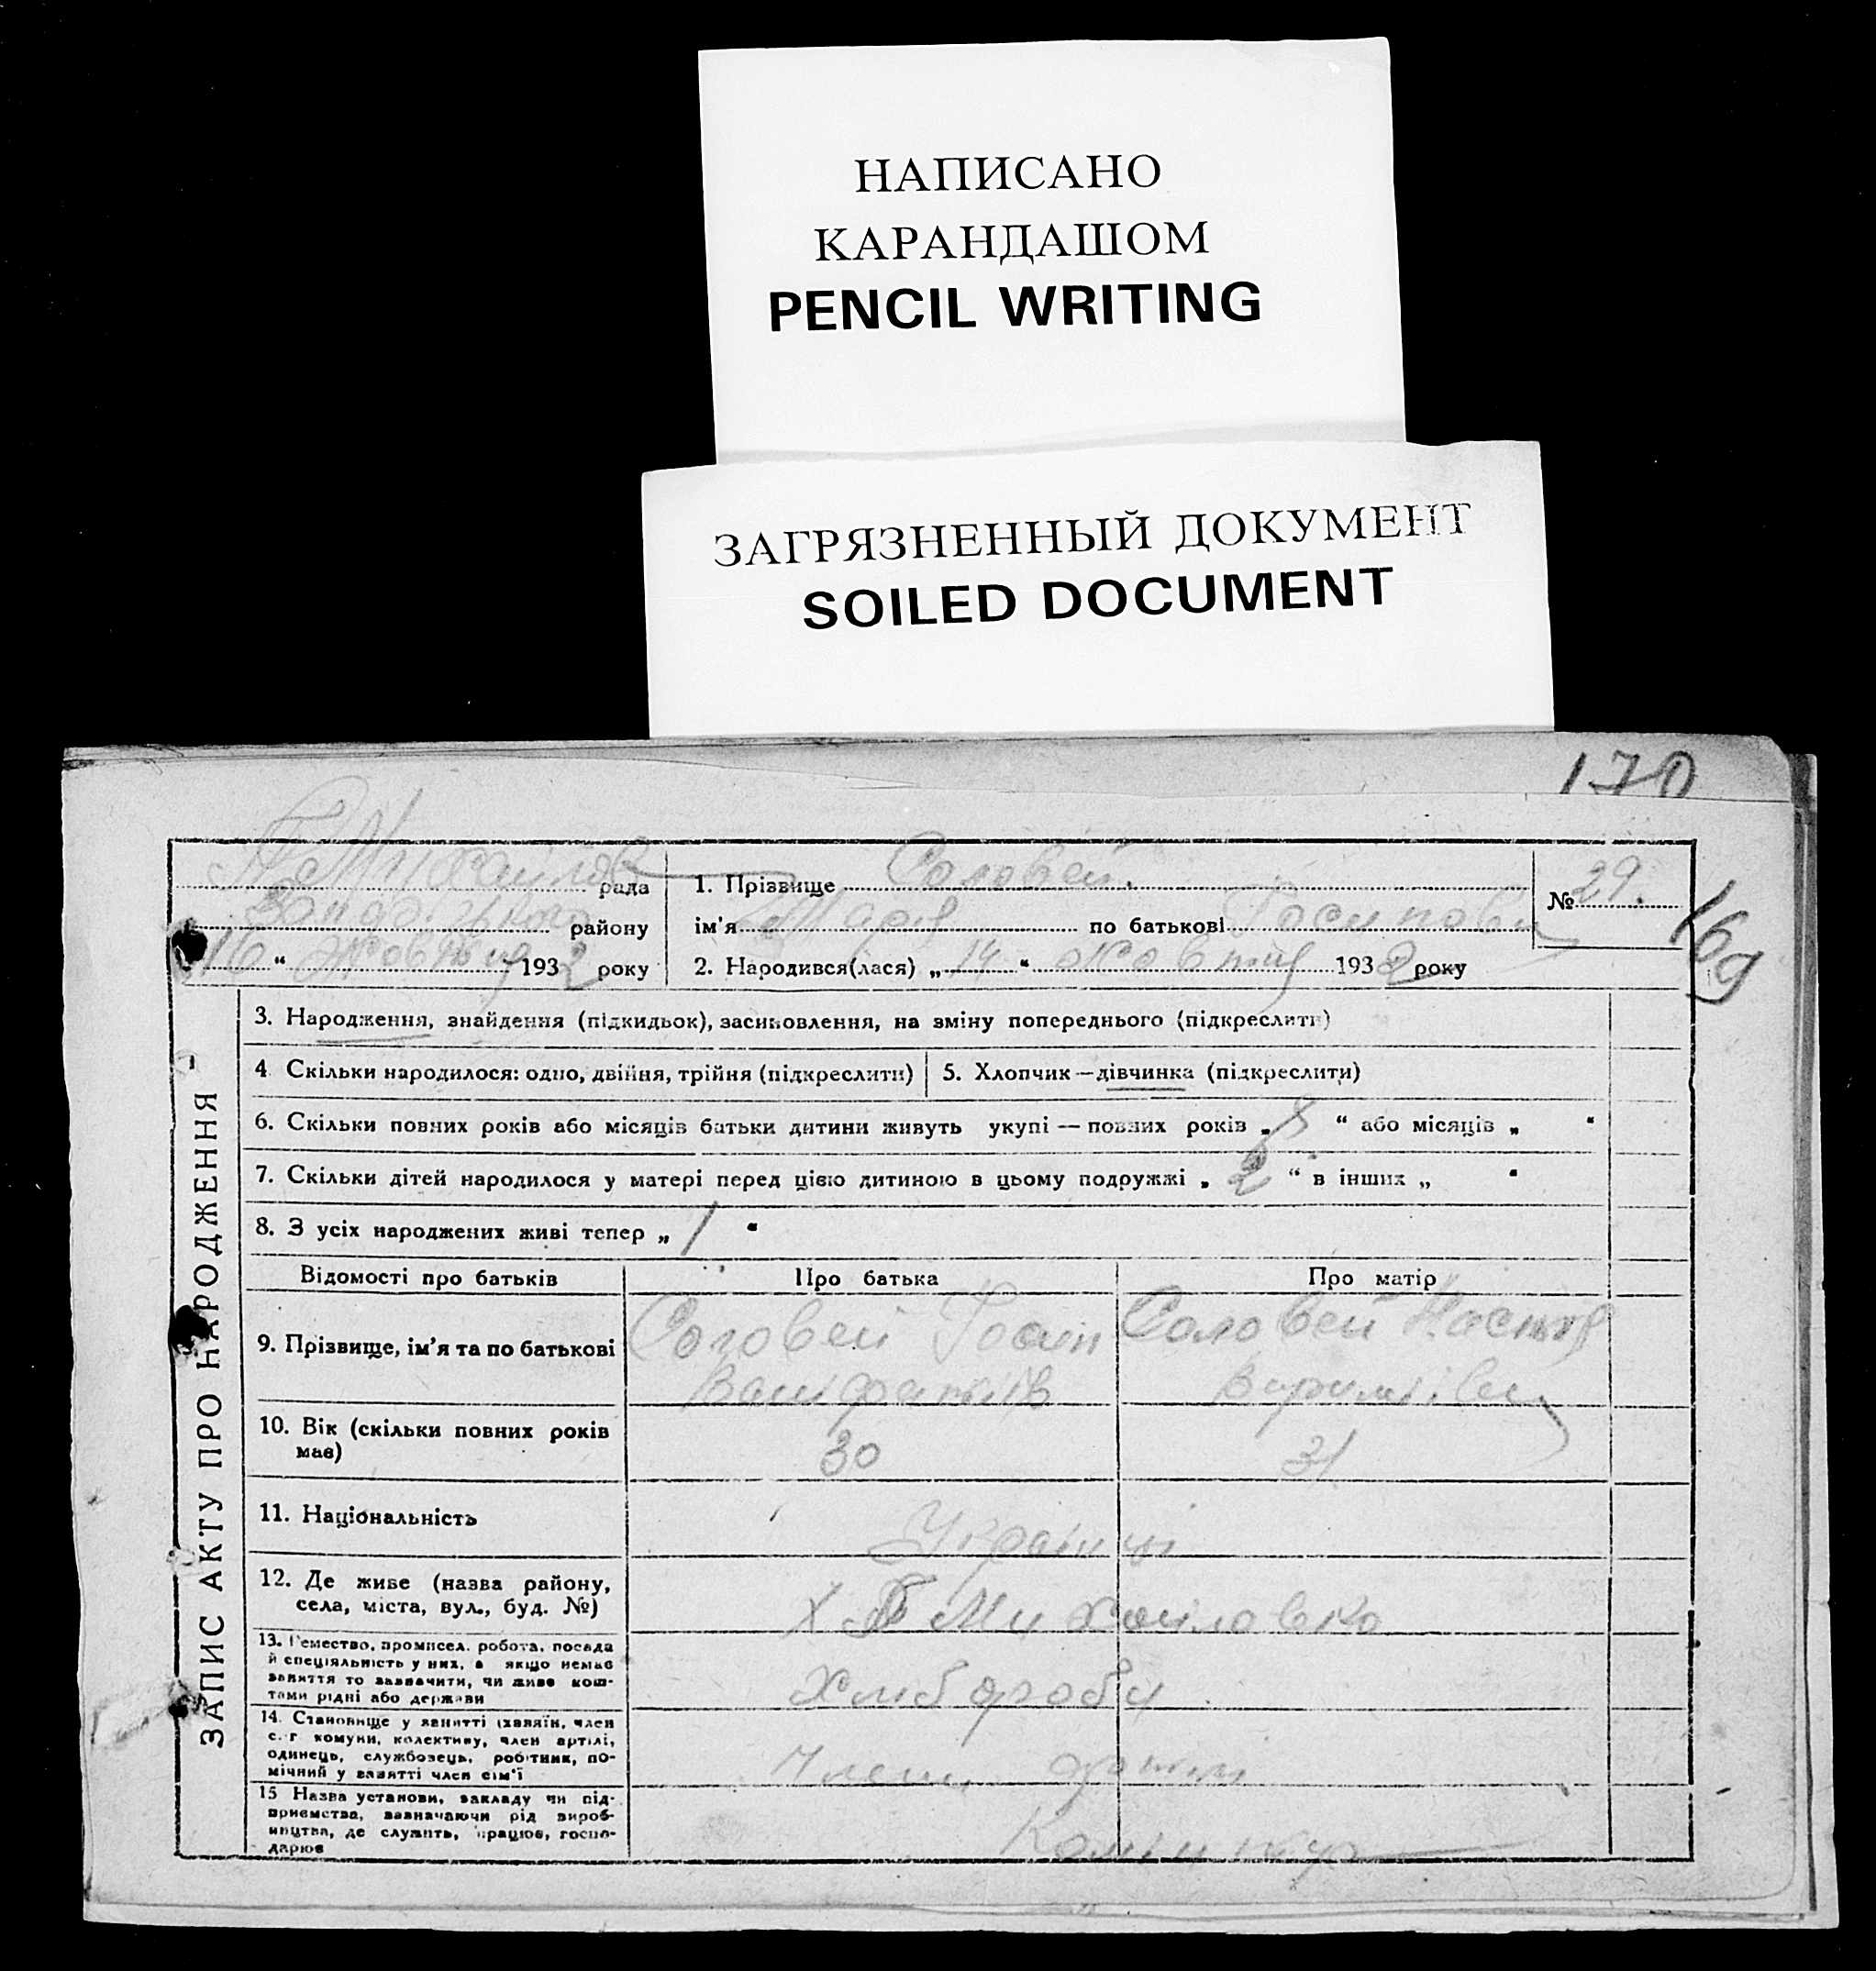 НАПИСАНО
КАРАНДАШОМ
PENCIL WRITING
ЗАГРЯЗНЕННЫЙ ДОКУМЕНТ
SOILED DOCUMENT
170
169
ЗАПИС АКТУ ПРО НАРОДЖЕННЯ
рада
району
16 “ Жовтня 1932 року
1. Прізвище Соловей.
№ 29.
ім'я Марія по батькові Йосиповн
2. Народився(лася) „ 14 “ Жовтня 1932 року
3. Народження, знайдення (підкидьок), засиновлення, на зміну попереднього (підкреслити)
4 Скільки народилося: одно, двійня, трійня (підкреслити)
5. Хлопчик — дівчинка (підкреслити)
6. Скільки повних років або місяців батьки дитини живуть укупі — повних років „ 8 “ або місяців „ “
7. Скільки дітей народилося у матері перед цією дитиною в цьому подружжі „ 2 “ в інших „ “
8. З усіх народжених живі тепер „ 1 “
Відомості про батьків
Про батька
Про матір
9. Прізвище, ім'я та по батькові
Соловей
Соловей Настя
10. Вік (скільки повних років
має)
30
31
11. Національність
Українці
12. Де живе (назва району,
села, міста, вул., буд. №)
Михайловка
13. Ремество, промисел, робота, посада
й спеціяльність у них, а якщо немає
заняття то зазначити, чи живе кош-
тами рідні або держави
Хлібороби
14. Становище у занятті (хазяїн, член
с.-г комуни, колективу, член артілі,
одинець, службовець, робітник, по-
мічний у занятті член сім'ї
Члени артілі
15 Назва установи, закладу чи під-
приємства, зазначаючи рід вироб-
ництва, де служить, працює, госпо-
дарює